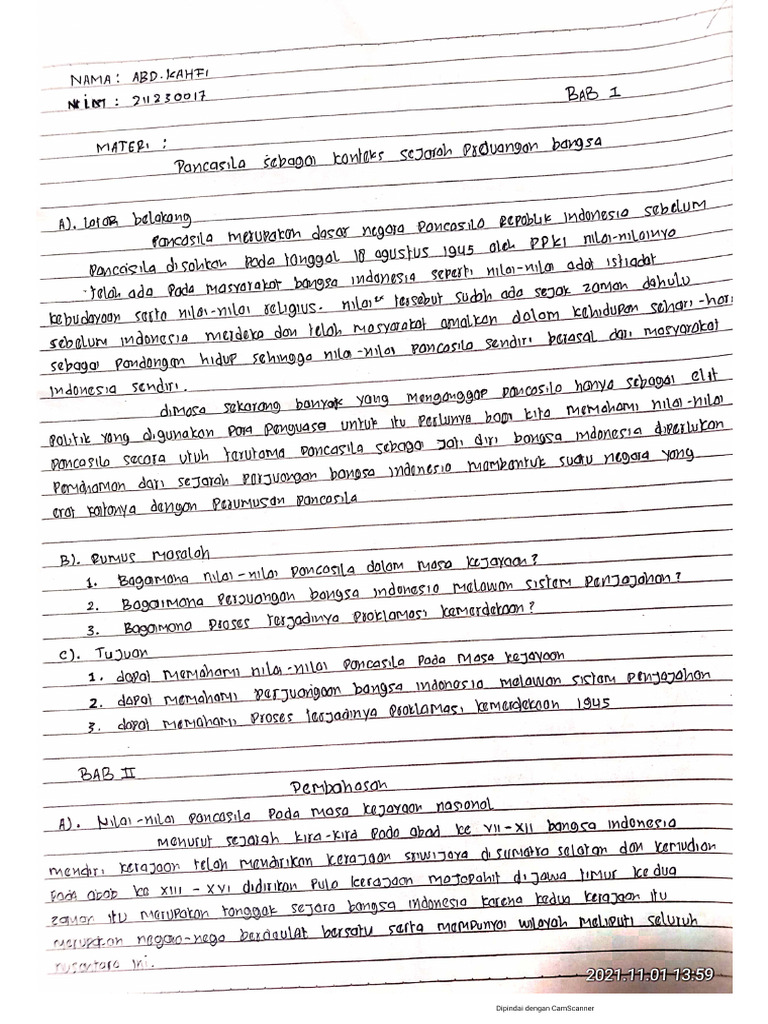 NAMA : ABD. KAHFI
NIM : 211230017
BAB I
MATERI :
Pancasila sebagai konteks sejarah Prduangan bangsa
A). latar belakang
Pancasila merupakan dasar negara Pancasila Republik indonesia sebelum
Pancaisila disahkan pada tanggal 18 agustus 1945 oleh PPKI nilai-nilainya
telah ada pada masyarakat bangsa indonesia seperti nilai-nilai adat istiadat
kebudayaan serta nilai-nilai religius. nilai" tersebut sudah ada sejak zaman dahulu
sebelum indonesia merdeka dan telah masyarakat amalkan dalam kehidupan sehari-hari
sebagai pandangan hidup sehingga nilai-nilai pancasila sendiri berasal dari masyarakat
indonesia sendiri.
dimasa sekarang banyak yang menganggap pancasila hanya sebagai elit
politik yang digunakan para penguasa untuk itu perlunya bagi kita memahami nilai-nilai
pancasila secara utuh terutama pancasila sebagai jati diri bangsa indonesia diperlukan
pemahaman dari sejarah perjuangan bangsa indonesia membentuk suatu negara yang
erat kaitanya dengan perumusan pancasila
B). Rumus masalah
1. Bagaimana nilai-nilai pancasila dalam masa kejayaan?
2. Bagaimana perjuangan bangsa indonesia melawan sistem penjajahan?
3. Bagaimana proses terjadinya proklamasi kemerdekaan?
C). Tujuan
1. dapat memahami nilai-nilai pancasila pada masa kejayaan
2. dapat memahami perjuangaan bangsa indonesia melawan sistem penjajahan
3. dapat memahami proses terjadinya proklamasi kemerdekaan 1945
BAB II
Pembahasan
A). Nilai-nilai pancasila pada masa kejayaan nasional
menurut sejarah kira-kira pada abad ke VII-XII bangsa indonesia
mendiri kerajaan telah mendirikan kerajaan sriwijaya disumatra selatan dan kemudian
pada abab ke XIII - XVI didirikan pula kerajaan majapahit dijawa timur kedua
zaman itu merupakan tonggak sejara bangsa indonesia karena kedua kerajaan itu
merupakan negara-nega berdaulat bersatu serta mempunyai wilayah meliputi seluruh
nusantara ini.
2021.11.01 13:59
Dipindai dengan CamScanner